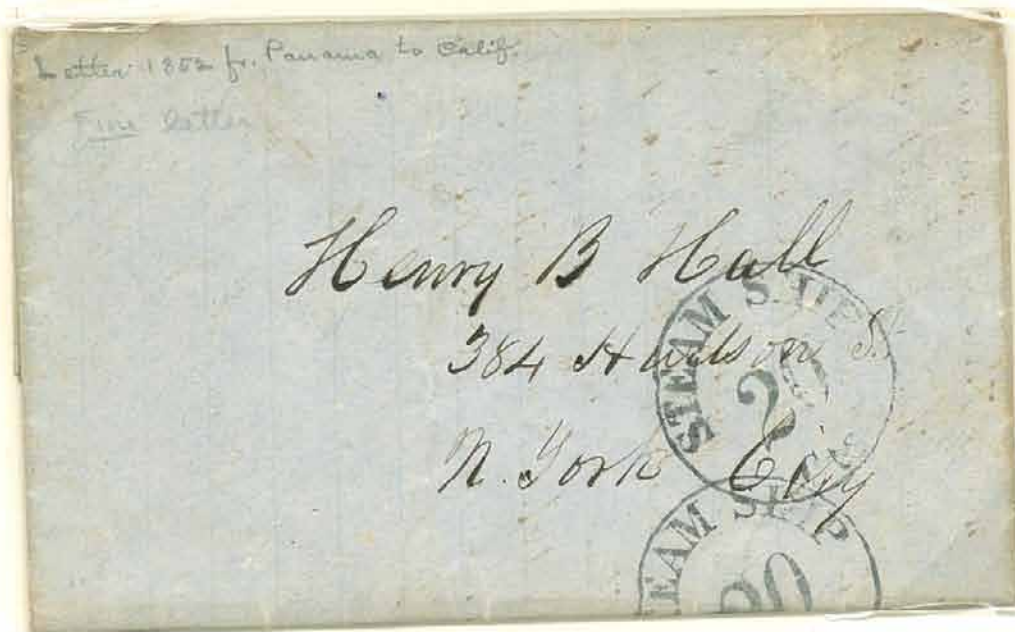 Letter 1852 fr. Panama to Calif.
Fine letter
Henry B Hall
384 Hudson St
N. York City
STEAM SHIP
2
STEAM SHIP
20